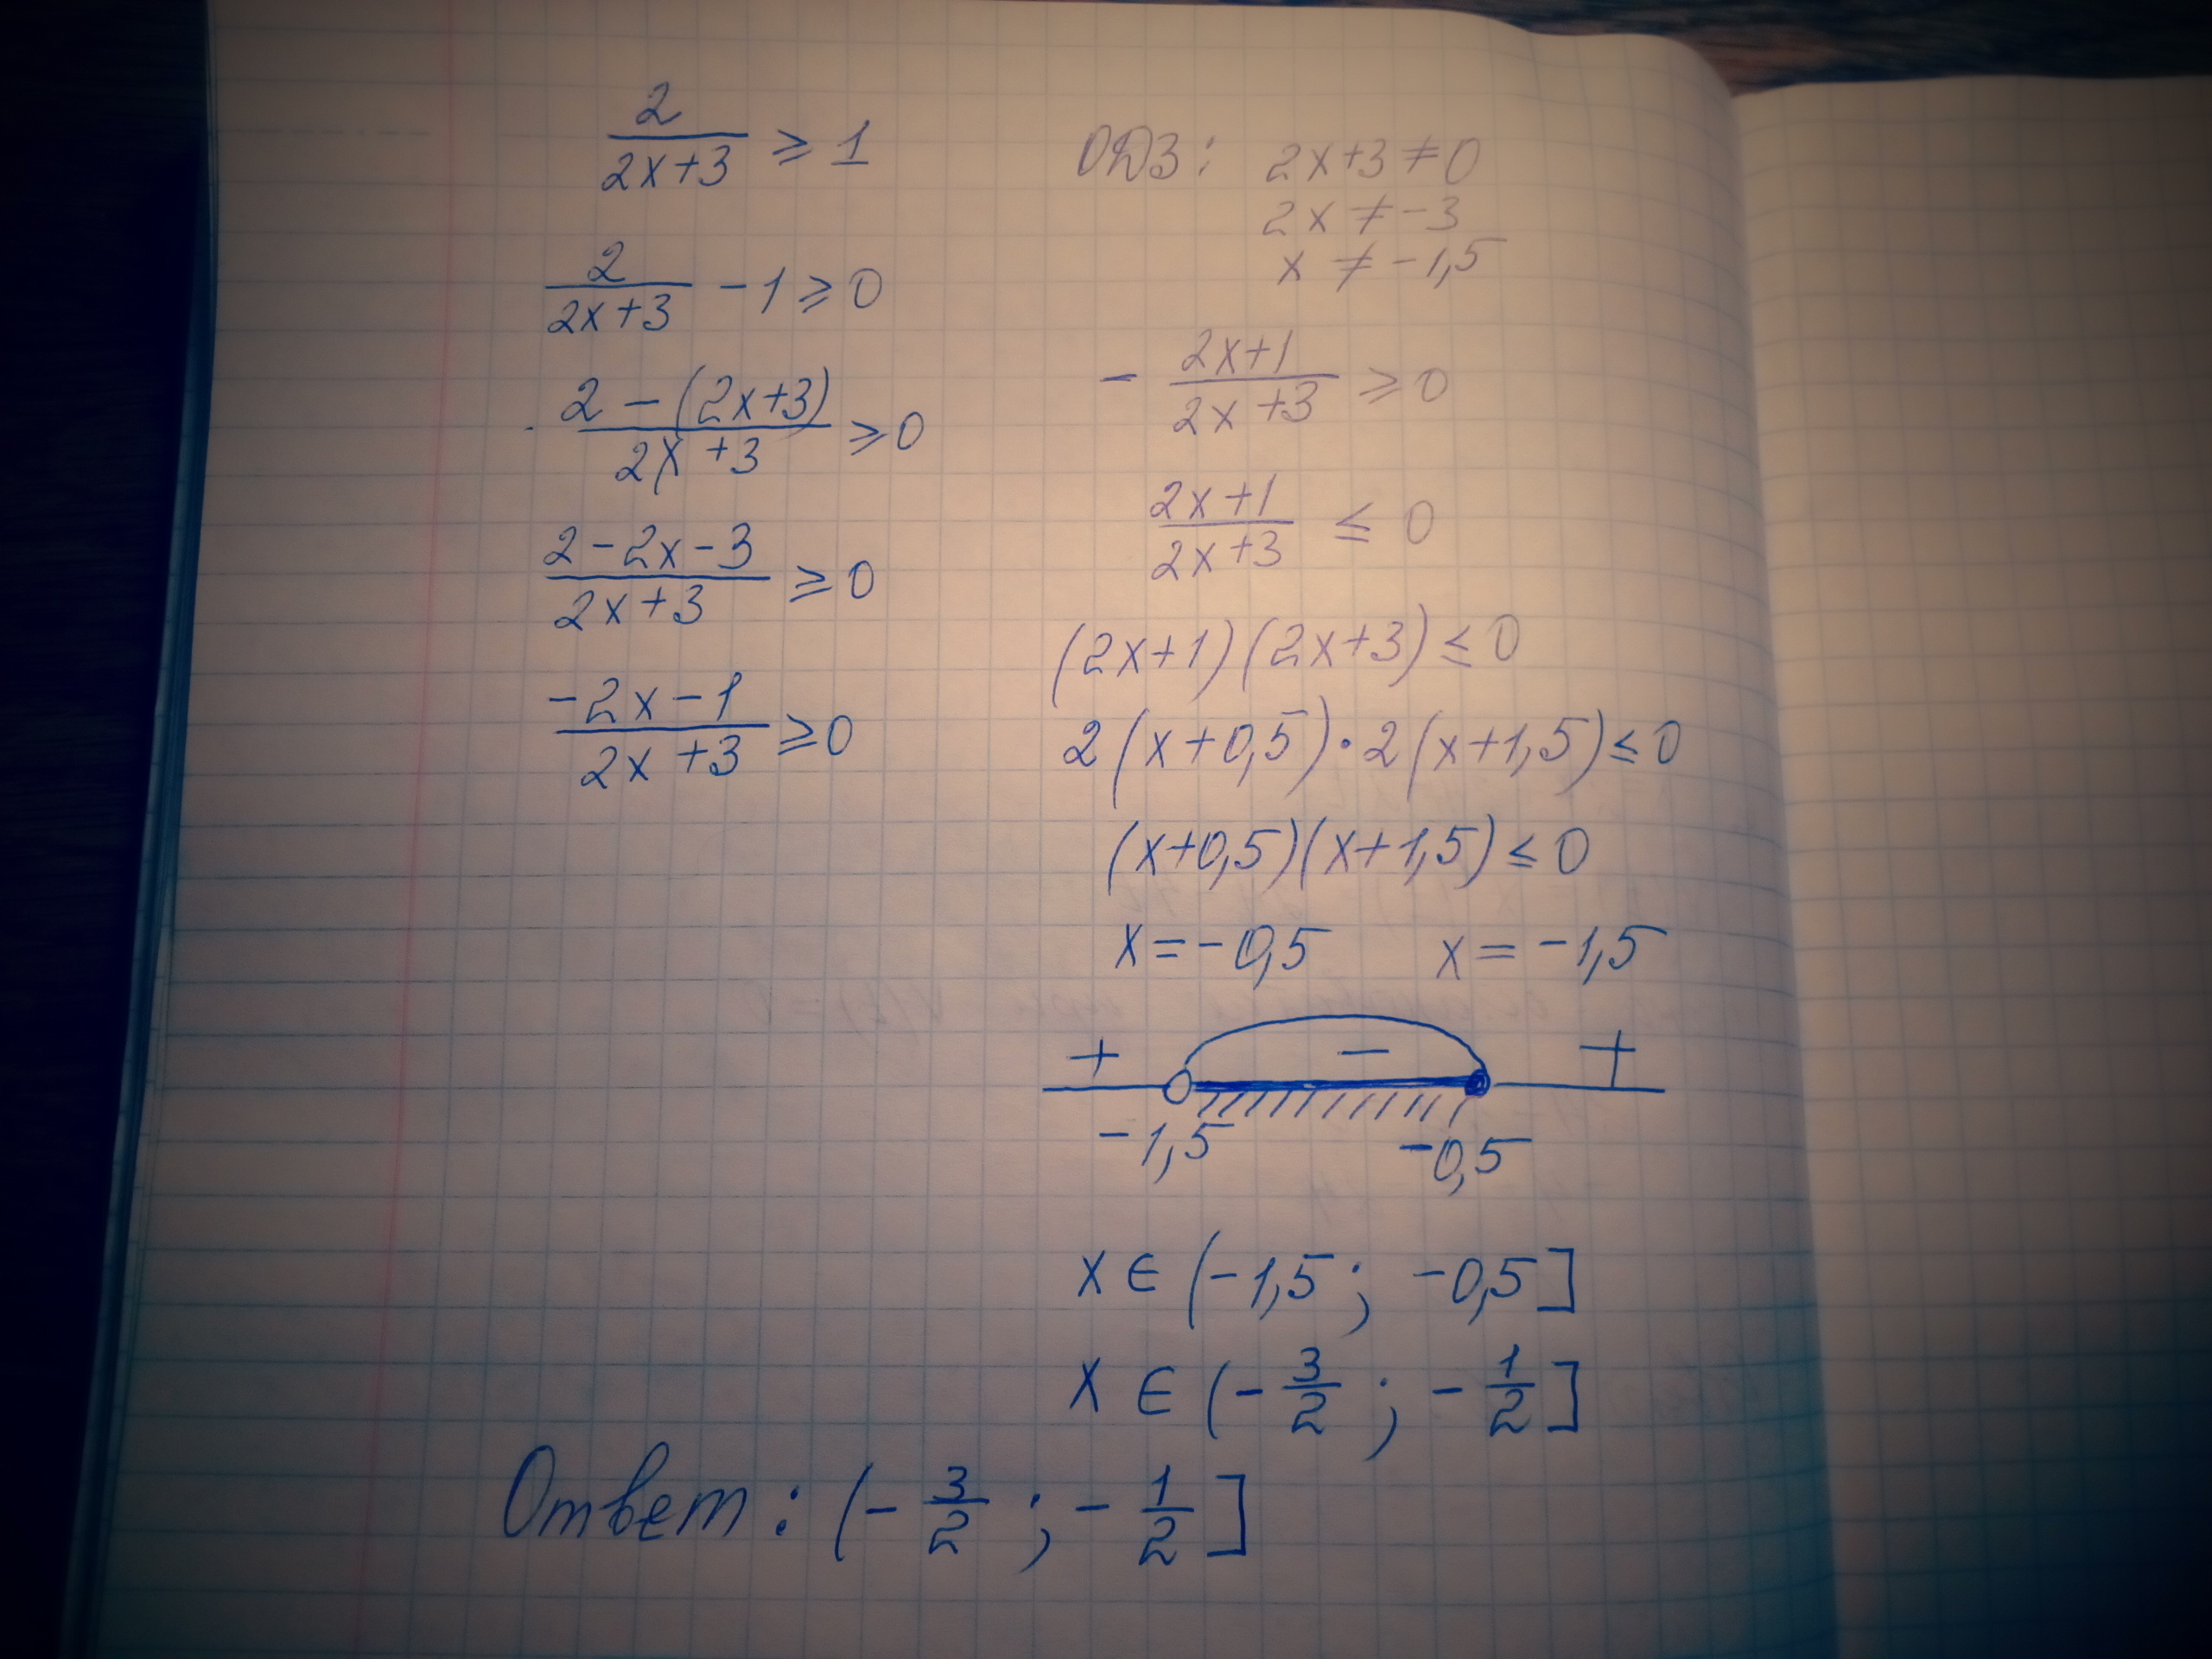 2/(2x+3) ≥ 1
2/(2x+3) - 1 ≥ 0
(2 - (2x+3))/(2x+3) ≥ 0
(2 - 2x - 3)/(2x+3) ≥ 0
(-2x - 1)/(2x+3) ≥ 0
ОДЗ: 2x+3 ≠ 0
2x ≠ -3
x ≠ -1,5
- (2x+1)/(2x+3) ≥ 0
(2x+1)/(2x+3) ≤ 0
(2x+1)(2x+3) ≤ 0
2(x+0,5)·2(x+1,5) ≤ 0
(x+0,5)(x+1,5) ≤ 0
x = -0,5 x = -1,5
+ - +
-1,5 -0,5
x ∈ (-1,5; -0,5]
x ∈ (-3/2; -1/2]
Ответ: (-3/2; -1/2]